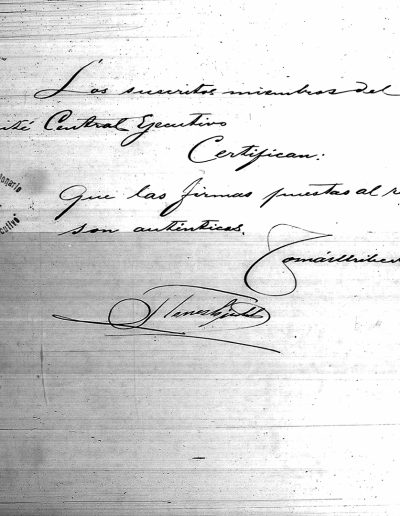 Los suscritos miembros del
ité Central Ejecutivo
Certifican:
Que las firmas puestas al r
son auténticas.
Tomás Uribe